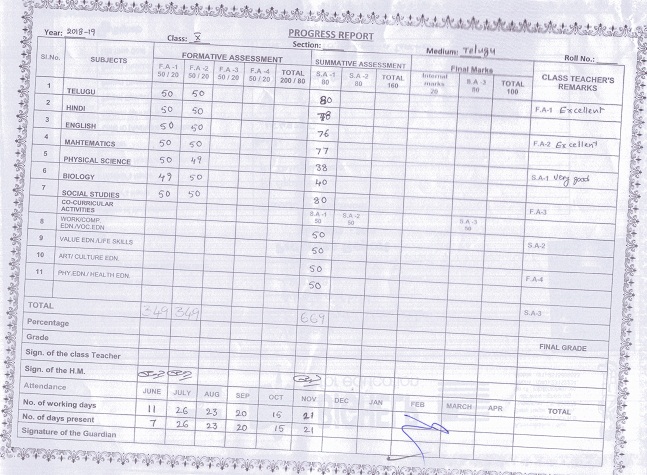 PROGRESS REPORT
Year: 2018-19 Class: X Section: Medium: Telugu Roll No.:
Sl.No. SUBJECTS FORMATIVE ASSESSMENT SUMMATIVE ASSESSMENT Final Marks CLASS TEACHER'S REMARKS
F.A -1 50 / 20 F.A -2 50 / 20 F.A -3 50 / 20 F.A -4 50 / 20 TOTAL 200 / 80 S.A -1 80 S.A -2 80 TOTAL 160 Internal marks 20 S.A -3 80 TOTAL 100
1 TELUGU 50 50 80 F.A-1 Excellent
2 HINDI 50 50 78
3 ENGLISH 50 50 76 F.A-2 Excellent
4 MAHTEMATICS 50 50 77
5 PHYSICAL SCIENCE 50 49 38 S.A-1 Very good
6 BIOLOGY 49 50 40
7 SOCIAL STUDIES 50 50 80 F.A-3
CO-CURRICULAR ACTIVITIES S.A -1 50 S.A -2 50 S.A -3 50
8 WORK/COMP. EDN./VOC.EDN 50 S.A-2
9 VALUE EDN./LIFE SKILLS 50
10 ART/ CULTURE EDN. 50 F.A-4
11 PHY.EDN / HEALTH EDN. 50
TOTAL 349 349 669 S.A-3
Percentage
Grade FINAL GRADE
Sign. of the class Teacher
Sign. of the H.M.
Attendance JUNE JULY AUG SEP OCT NOV DEC JAN FEB MARCH APR TOTAL
No. of working days 11 26 23 20 15 21
No. of days present 7 26 23 20 15 21
Signature of the Guardian